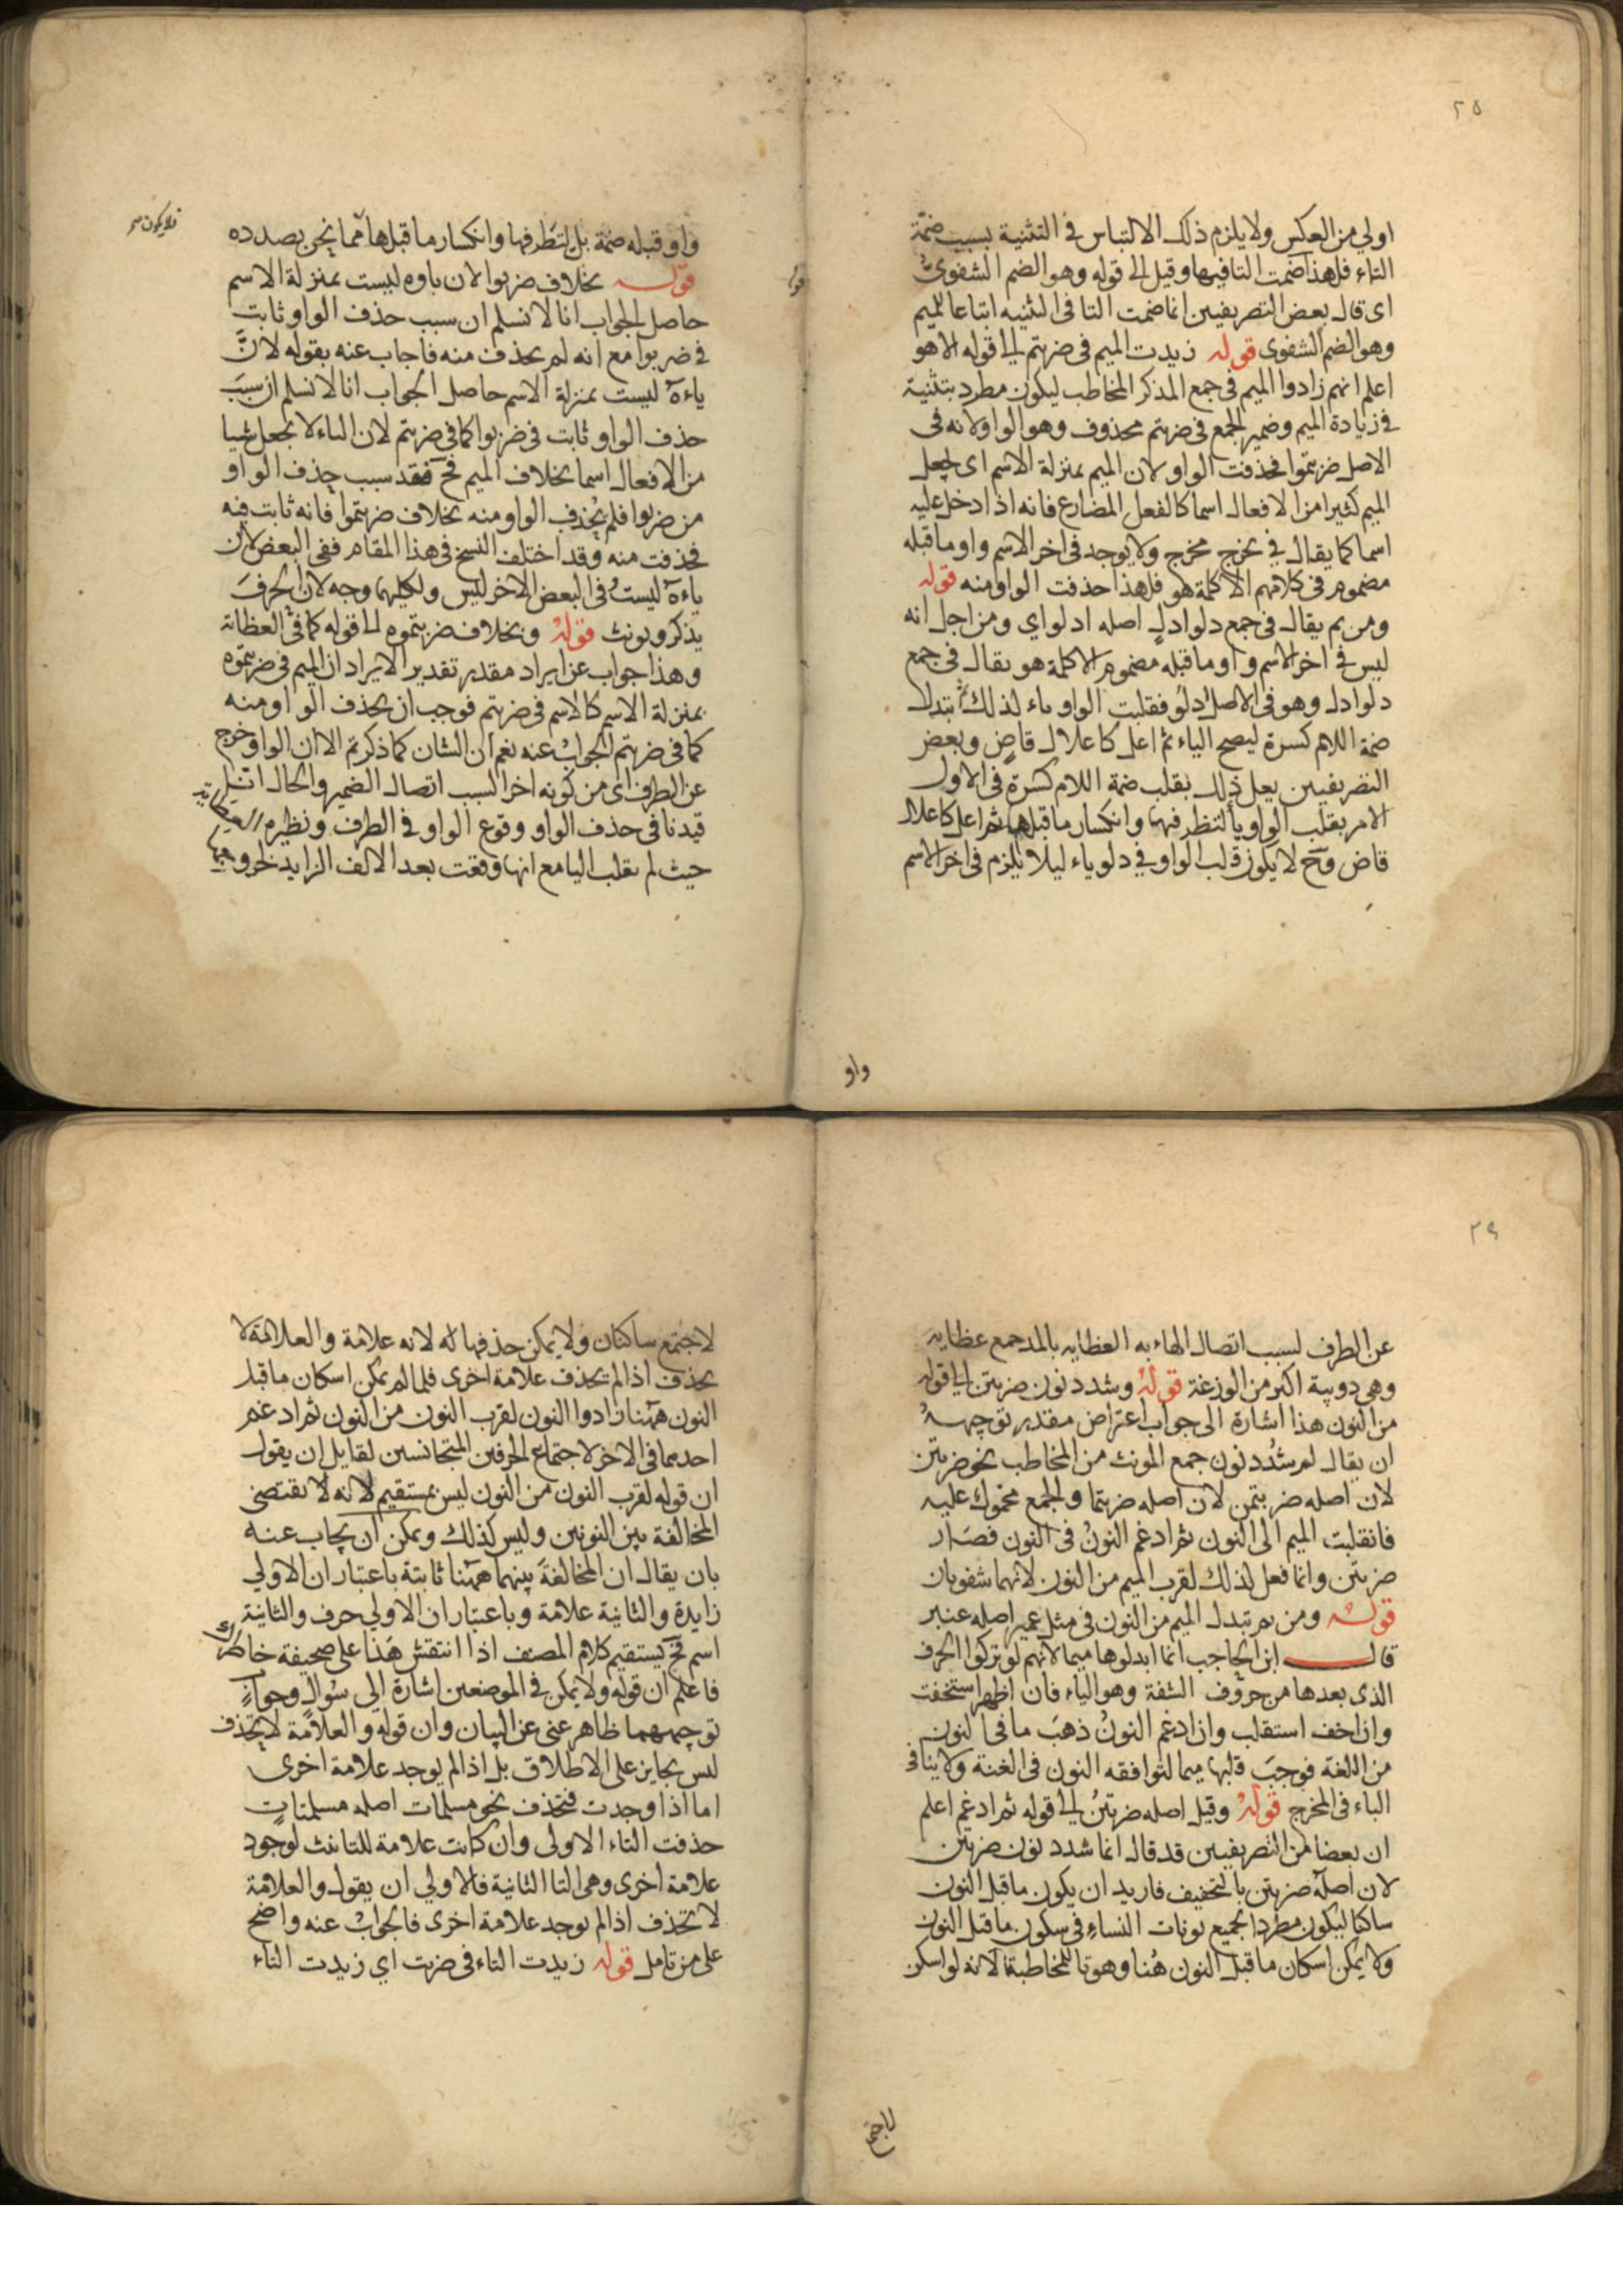 ٢٥
اولي من العكس ولا يلزم ذلك الالتباس في التثنية بسبب ضمّة
التاء فلهذا ضمت التا فيها وقيل الى قوله وهو الضم الشفوىّ
اى قال بعض التصريفيين انما ضمت التا فى التثنيه اتباعا للميم
وهو الضم الشفوى قوله زيدت الميم فى ضربتم الى قوله الا هو
اعلم انهم زادوا الميم فى جمع المذكر المخاطب ليكون مطرد بتثنية
فى زيادة الميم وضمير الجمع فى ضربتم محذوف وهو الواو لانه فى
الاصل ضربتموا فحذفت الواو لان الميم بمنزلة الاسم اى لجعل
الميم كثيرا من الافعال اسما كالفعل المضارع فانه اذا دخل عليه
اسما كما يقال فى يخرج مخرج ولا يوجد فى اخر الاسم واو ما قبله
مضموم فى كلامهم الا كلمة هو فلهذا حذفت الواو منه قوله
ومن ثم يقال فى جمع دلو ادلٍ اصله ادلو اي ومن اجل انه
ليس فى اخر الاسم واو ما قبله مضموم الا كلمة هو يقال فى جمع
دلو ادل وهو فى الاصل ادلُو فقلبت الواو ياء لذلك ثم تبدل
ضمة اللام كسرة ليصح الياء ثم اعل كاعلال قاضٍ وبعض
التصريفيين يعل ذلك بقلب ضمة اللام كسرة فى الاول
الامر بقلب الواو يا لتطرفها وانكسار ما قبلها ثم اعل كاعلال
قاض وح لا يكون قلب الواو فى دلو ياء ليلا يلزم فى اخر الاسم
واو
واو قبله ضمة بل لتطرفها وانكسار ما قبلها مما نحن بصدده
فلا يكون
قوله بخلاف ضربوا لان باوه ليست بمنزلة الاسم
حاصل الجواب انا لا نسلم ان سبب حذف الواو ثابت
فى ضربوا مع انه لم يحذف منه فاجاب عنه بقوله لانّ
ياءه ليست بمنزلة الاسم حاصل الجواب انا لا نسلم ان سبب
حذف الواو ثابت فى ضربوا كما فى ضربتم لان الباء لا يجعل شيا
من الافعال اسما بخلاف الميم فح فقد سبب حذف الواو
من ضربوا فلم يحذف الواو منه بخلاف ضربتموا فانه ثابت فيه
فحذفت منه وقد اختلف النسخ فى هذا المقام ففى البعض لان
ياءه ليست وفى البعض الاخر ليس ولكليهما وجه لان الحرف
يذكر ويونث قوله وبخلاف ضربتموه الى قوله كما فى العظاية
وهذا جواب عن ايراد مقدر تقدير الايراد ان الميم فى ضربتموه
بمنزلة الاسم كالاسم فى ضربتم فوجب ان يحذف الواو منه
كما فى ضربتم الجواب عنه نعم ان الشان كما ذكرتم الا ان الواو خرج
عن الطرف اى من كونه اخرا لسبب اتصال الضمير والحال انما
قيدنا فى حذف الواو وقوع الواو فى الطرف ونظيره العظاية
حيث لم يقلب اليا مع انها وقعت بعد الالف الزايد لخروجها
٢٩
عن الطرف لسبب اتصال الهاء به العظايه بالمد جمع عظاية
وهى دويبة اكبر من الوزغة قوله وشدد نون ضربتن الى قوله
من النون هذا اشارة الى جواب اعتراض مقدر توجيهه
ان يقال لم شدد نون جمع المونث من المخاطب نحو ضربتن
لان اصله ضربتمن لان اصله ضربتما والجمع محمول عليه
فانقلبت الميم الى النون ثم ادغم النون فى النون فصار
ضربتن وانما فعل لذلك لقرب الميم من النون لانهما شفويان
قوله ومن ثم تبدل الميم من النون فى مثل عمبر اصله عنبر
قال ابن الحاجب انما ابدلوها ميما لانهم لو تركوا الحرف
الذى بعدها من حروف الشفة وهو الباء فان اظهر استخفت
وان اخف استقلب وان ادغم النون ذهب ما فى النون
من اللغة فوجب قلبها ميما لتوافقه النون فى الغنة ولا ينافى
الباء فى المخرج قوله وقيل اصله ضربتن الى قوله ثم ادغم اعلم
ان بعضا من التصريفيين قد قال انما شدد نون ضربتن
لان اصله ضربتن بالتخفيف فاريد ان يكون ما قبل النون
ساكنا ليكون مطردا بجميع نونات النساء فى سكون ما قبل النون
ولا يمكن اسكان ما قبل النون هنا وهو تا للمخاطبة لانه لو اسكن
لاجتمع
لاجتمع ساكنان ولا يمكن حذفها له لانه علامة والعلامة لا
يحذف اذا لم يحذف علامة اخرى فلما لم يمكن اسكان ما قبل
النون ههنا زادوا النون لقرب النون من النون ثم ادغم
احدهما فى الاخر لاجتماع الحرفين المتجانسين لقايل ان يقول
ان قوله لقرب النون من النون ليس بمستقيم لانه لا يقتضى
المخالفة بين النونين وليس كذلك ويمكن ان يجاب عنه
بان يقال ان المخالفة بينهما ههنا ثابتة باعتبار ان الاولي
زايدة والثانية علامة وباعتبار ان الاولى حرف والثانية
اسم فح يستقيم كلام المصنف اذا انتقش هذا على صحيفة خاطرك
فاعلم ان قوله ولا يمكن فى الموضعين اشارة الى سؤال وجواب
توجيههما ظاهر غنى عن البيان وان قوله والعلامة لا يحذف
ليس بجايز على الاطلاق بل اذا لم يوجد علامة اخرى
اما اذا وجدت فتحذف نحو مسلمات اصله مسلمتات
حذفت التاء الاولى وان كانت علامة للتانيث لوجود
علامة اخرى وهى التا الثانية فالاولي ان يقول والعلامة
لا تحذف اذا لم يوجد علامة اخرى فالجواب عنه واضح
على من تامل قوله زيدت التاء فى ضربت اي زيدت التاء